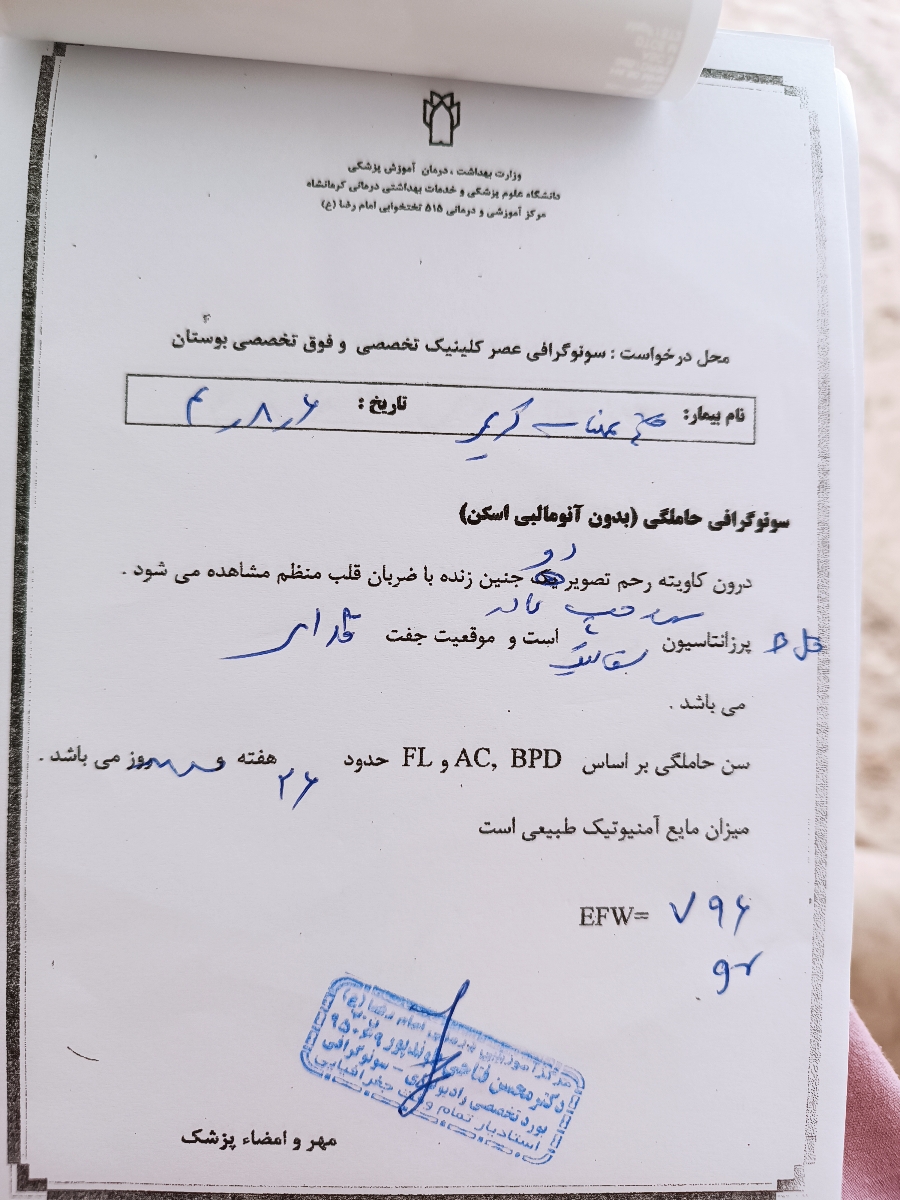 وزارت بهداشت ، درمان آموزش پزشکی
دانشگاه علوم پزشکی و خدمات بهداشتی درمانی کرمانشاه
مرکز آموزشی و درمانی ۵۱۵ تختخوابی امام رضا (ع)
محل درخواست : سونوگرافی عصر کلینیک تخصصی و فوق تخصصی بوستان
نام بیمار: تاریخ :
سونوگرافی حاملگی (بدون آنومالیی اسکن)
دو
درون کاویته رحم تصویر جنین زنده با ضربان قلب منظم مشاهده می شود .
پرزانتاسیون است و موقعیت جفت
می باشد .
سن حاملگی بر اساس BPD ,AC و FL حدود ۲۶ هفته و روز می باشد .
میزان مایع آمنیوتیک طبیعی است
EFW= ۷۹۶
gr
دکتر محسن
مهر و امضاء پزشک